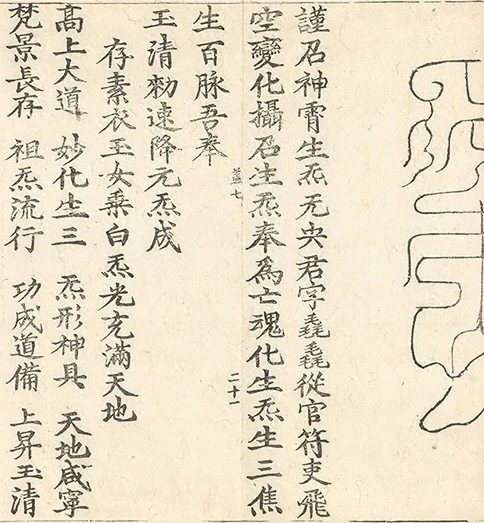 謹召神霄生炁无央君字毳毳從官符吏飛
空變化攝召生炁奉爲亡魂化生炁生三焦
蓋七
二十一
生百脉吾奉
玉清勑速降元炁成
存素衣玉女乘白炁光充滿天地
高上大道 妙化生三 炁形神具 天地咸寧
梵景長存 祖炁流行 功成道備 上昇玉清